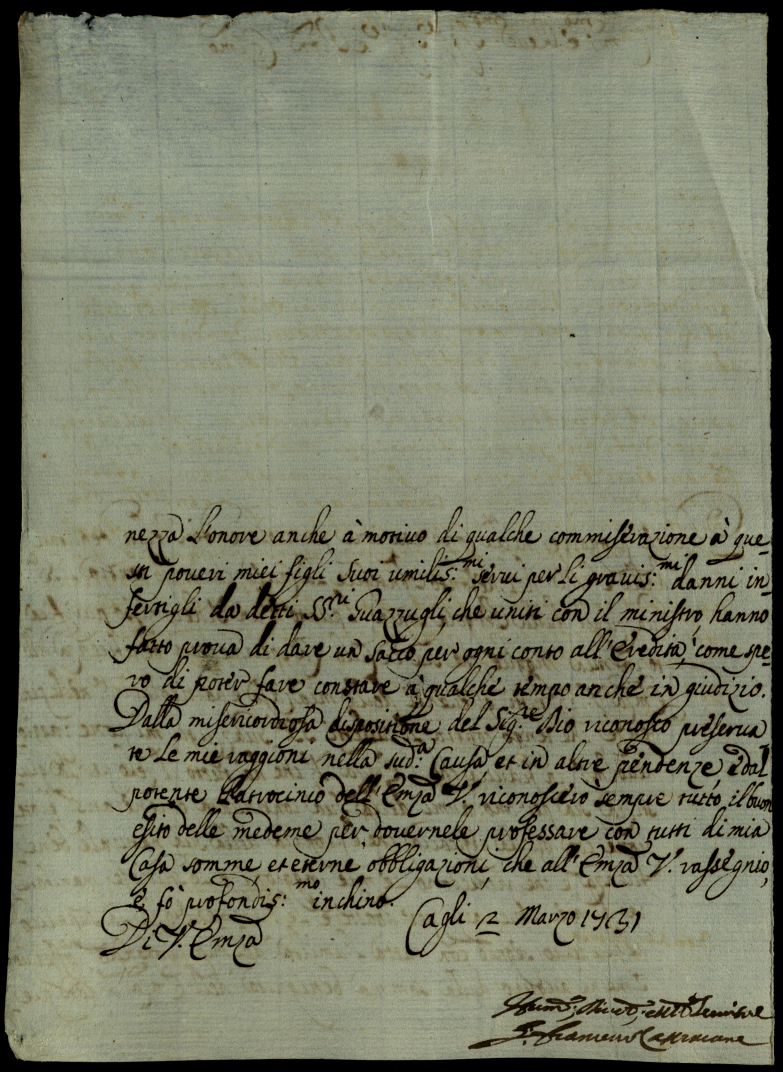 nezza l'onore anche à motivo di qualche commiserazione à que-
sti poveri miei figli Suoi umilis:mi servi per li gravis:mi danni in-
fertigli da detti SS:ri Guazzugli, che uniti con il ministro, hanno
fatto prova di dare un sacco per ogni conto all'Eredità, come spe-
ro di poter fare constare à qualche tempo anche in giudizio.
Dalla misericordiosa disposizione del Sig:re Dio riconosco preserva
te le mie raggioni nella sud:a Causa et in altre pendenze, e dal
potente Patrocinio dell'Emza V: riconoscerò sempre tutto il buon
esito delle medeme per dovernele professare con tutti di mia
Casa somme et eterne obbligazioni, che all'Emza V. rassegnio,
e fò profondis:mo inchino.
Di V. Emza Cagli 2 Marzo 1731
Humo, Divo, et Servitore
Francesco